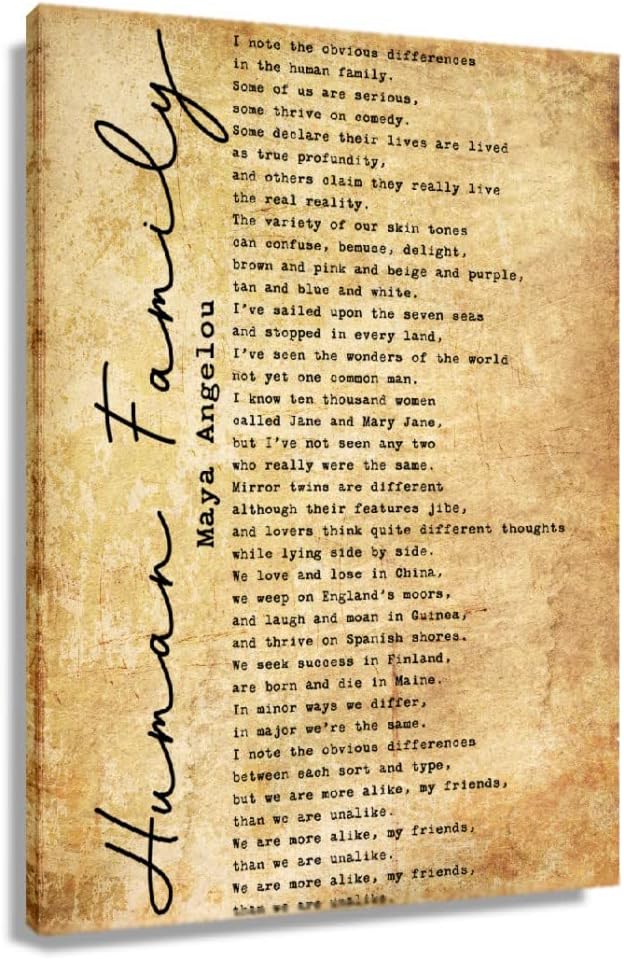 Human Family
Maya Angelou
I note the obvious differences
in the human family.
Some of us are serious,
some thrive on comedy.
Some declare their lives are lived
as true profundity,
and others claim they really live
the real reality.
The variety of our skin tones
can confuse, bemuse, delight,
brown and pink and beige and purple,
tan and blue and white.
I've sailed upon the seven seas
and stopped in every land,
I've seen the wonders of the world
not yet one common man.
I know ten thousand women
called Jane and Mary Jane,
but I've not seen any two
who really were the same.
Mirror twins are different
although their features jibe,
and lovers think quite different thoughts
while lying side by side.
We love and lose in China,
we weep on England's moors,
and laugh and moan in Guinea,
and thrive on Spanish shores.
We seek success in Finland,
are born and die in Maine.
In minor ways we differ,
in major we're the same.
I note the obvious differences
between each sort and type,
but we are more alike, my friends,
than we are unalike.
We are more alike, my friends,
than we are unalike.
We are more alike, my friends,
than we are unalike.